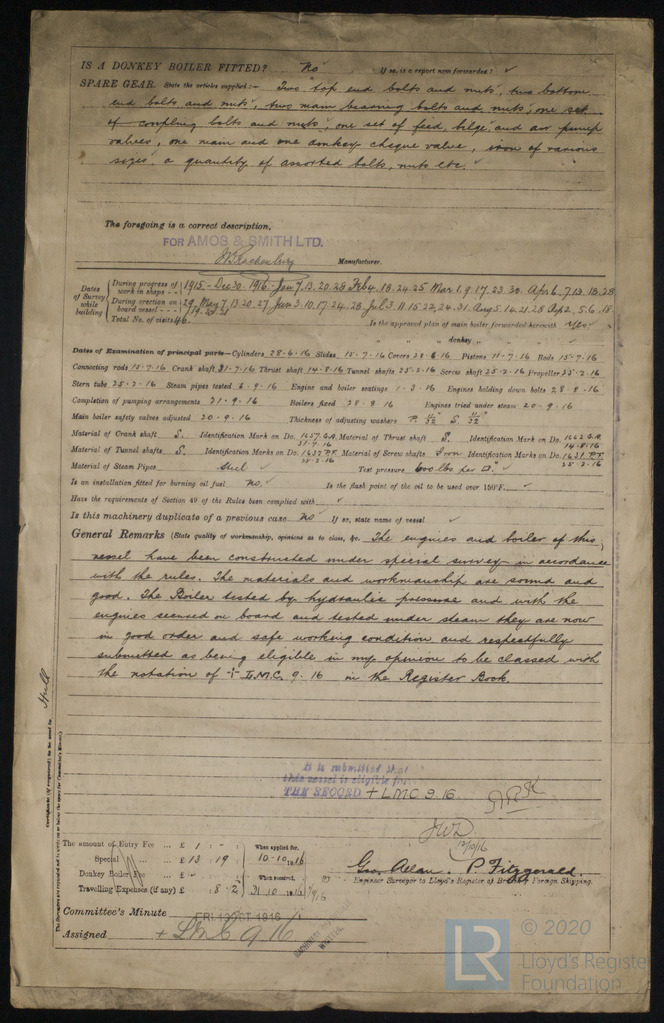 IS A DONKEY BOILER FITTED? No If so, is a report now forwarded? ✓
SPARE GEAR. State the articles supplied:- Two top end bolts and nuts, two bottom
end bolts and nuts, two main bearing bolts and nuts, one set
of coupling bolts and nuts, one set of feed, bilge and air pump
valves, one main and one donkey cheque valve, iron of various
sizes, a quantity of assorted bolts, nuts etc.
The foregoing is a correct description,
FOR AMOS & SMITH LTD.
Manufacturer.
Dates of Survey while building
During progress of work in shops - - 1915 - Dec 30. 1916 - Jan 7. 13. 20. 28 Feb 4. 18. 24. 25 Mar 1. 9. 17. 23. 30. Apr 6. 7. 13. 18. 28
During erection on board vessel - - - 29. May 7. 13. 20. 27 Jun 3. 10. 17. 24. 28 Jul 3. 11. 15. 22. 24. 31. Aug 5. 14. 21. 28 Sep 2. 5. 6. 18
19. 20. 21
Total No. of visits 46. Is the approved plan of main boiler forwarded herewith Yes
" " " donkey " " "
Dates of Examination of principal parts—Cylinders 28.6.16 Slides 15.7.16 Covers 28.6.16 Pistons 11.7.16 Rods 15.7.16
Connecting rods 15.7.16 Crank shaft 31.7.16 Thrust shaft 14.8.16 Tunnel shafts 25.2.16 Screw shaft 25.2.16 Propeller 25.2.16
Stern tube 25.2.16 Steam pipes tested 6.9.16 Engine and boiler seatings 1.3.16 Engines holding down bolts 28.9.16
Completion of pumping arrangements 21.9.16 Boilers fixed 28.9.16 Engines tried under steam 20.9.16
Main boiler safety valves adjusted 20.9.16 Thickness of adjusting washers P. 11/32 S. 11/32
Material of Crank shaft S. Identification Mark on Do. 1657.G.A. 31.7.16 Material of Thrust shaft S. Identification Mark on Do. 1662 G.A. 14.8.16
Material of Tunnel shafts S. Identification Marks on Do. 1637 P.F. 25.2.16 Material of Screw shafts Iron Identification Marks on Do. 1631 P.F. 25.2.16
Material of Steam Pipes Steel ✓ Test pressure 600 lbs per □". ✓
Is an installation fitted for burning oil fuel No. ✓ Is the flash point of the oil to be used over 150°F. ✓
Have the requirements of Section 49 of the Rules been complied with ✓
Is this machinery duplicate of a previous case No ✓ If so, state name of vessel ✓
General Remarks (State quality of workmanship, opinions as to class, &c. The engines and boiler of this
vessel have been constructed under special survey in accordance
with the rules. The materials and workmanship are sound and
good. The Boiler tested by hydraulic pressure and with the
engines secured on board and tested under steam they are now
in good order and safe working condition and respectfully
submitted as being eligible in my opinion to be classed with
the notation of + L.M.C. 9.16 in the Register Book.
Hull
It is submitted that
this vessel is eligible for
THE RECORD + LMC 9.16
JWD
12/10/16
The amount of Entry Fee ... £ 1 : - : - When applied for,
Special ... ... £ 13 : 19 : 10.10.1916
Donkey Boiler Fee ... £ When received,
Travelling Expenses (if any) £ : 8 : 2 31.10.1916
Geo. Allan. P. Fitzgerald.
Engineer Surveyor to Lloyd's Register of British & Foreign Shipping.
Committee's Minute FRI. 13 OCT 1916
Assigned + LMC 9.16
© 2020
LR Lloyd's Register
Foundation